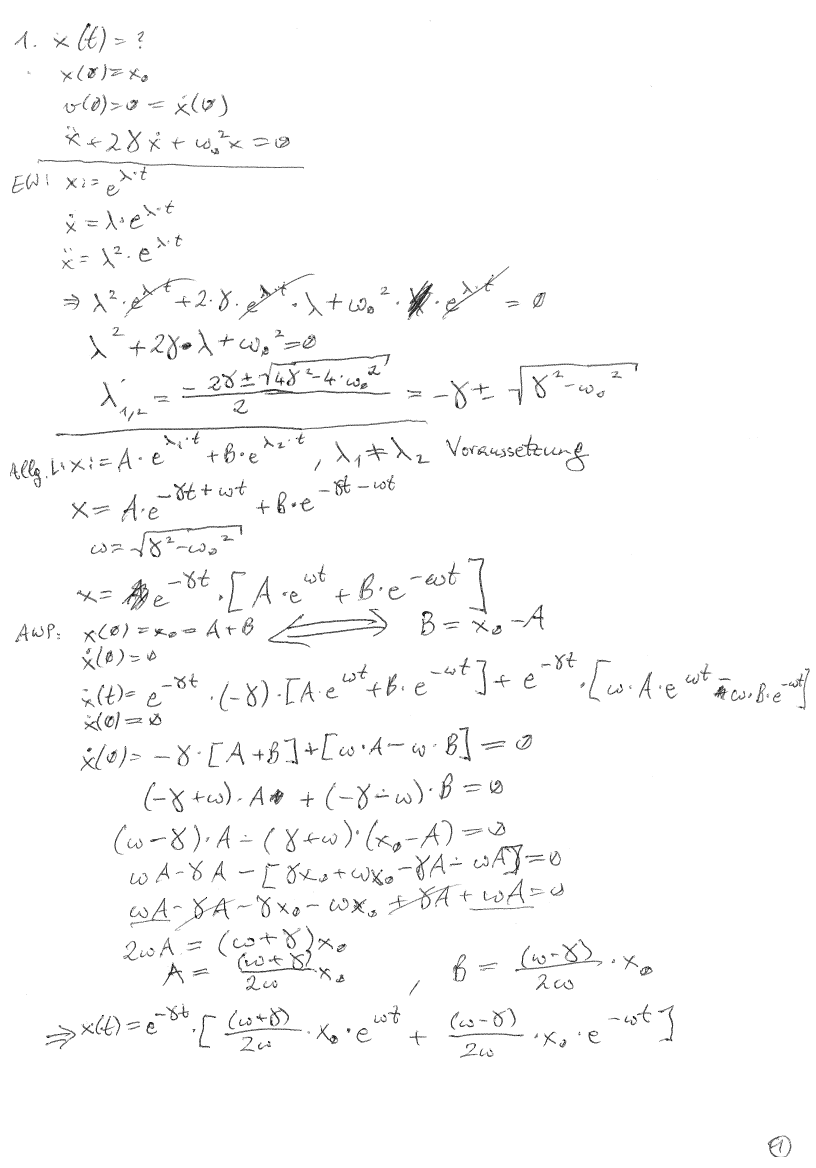 1. x(t) = ?
x(0) = x₀
v(0) = 0 = ẋ(0)
ẍ + 2γẋ + ω₀²x = 0
EW: x := e^(λ·t)
ẋ = λ·e^(λ·t)
ẍ = λ²·e^(λ·t)
⇒ λ²·e^(λ·t) + 2·γ·e^(λ·t)·λ + ω₀²·e^(λ·t) = 0
λ² + 2γ·λ + ω₀² = 0
λ₁,₂ = (-2γ ± √(4γ² - 4·ω₀²))/2 = -γ ± √(γ² - ω₀²)
Allg. L: x := A·e^(λ₁·t) + B·e^(λ₂·t), λ₁ ≠ λ₂ Voraussetzung
x = A·e^(-γt + ωt) + B·e^(-γt - ωt)
ω = √(γ² - ω₀²)
x = e^(-γt)·[A·e^(ωt) + B·e^(-ωt)]
AWP: x(0) = x₀ = A + B ⟺ B = x₀ - A
ẋ(0) = 0
ẋ(t) = e^(-γt)·(-γ)·[A·e^(ωt) + B·e^(-ωt)] + e^(-γt)·[ω·A·e^(ωt) - ω·B·e^(-ωt)]
ẋ(0) = 0
ẋ(0) = -γ·[A + B] + [ω·A - ω·B] = 0
(-γ + ω)·A + (-γ - ω)·B = 0
(ω - γ)·A - (γ + ω)·(x₀ - A) = 0
ωA - γA - [γx₀ + ωx₀ - γA - ωA] = 0
ωA - γA - γx₀ - ωx₀ + γA + ωA = 0
2ωA = (ω + γ)x₀
A = (ω + γ)/2ω x₀, B = (ω - γ)/2ω · x₀
⇒ x(t) = e^(-γt)·[(ω + γ)/2ω · x₀·e^(ωt) + (ω - γ)/2ω · x₀·e^(-ωt)]
①